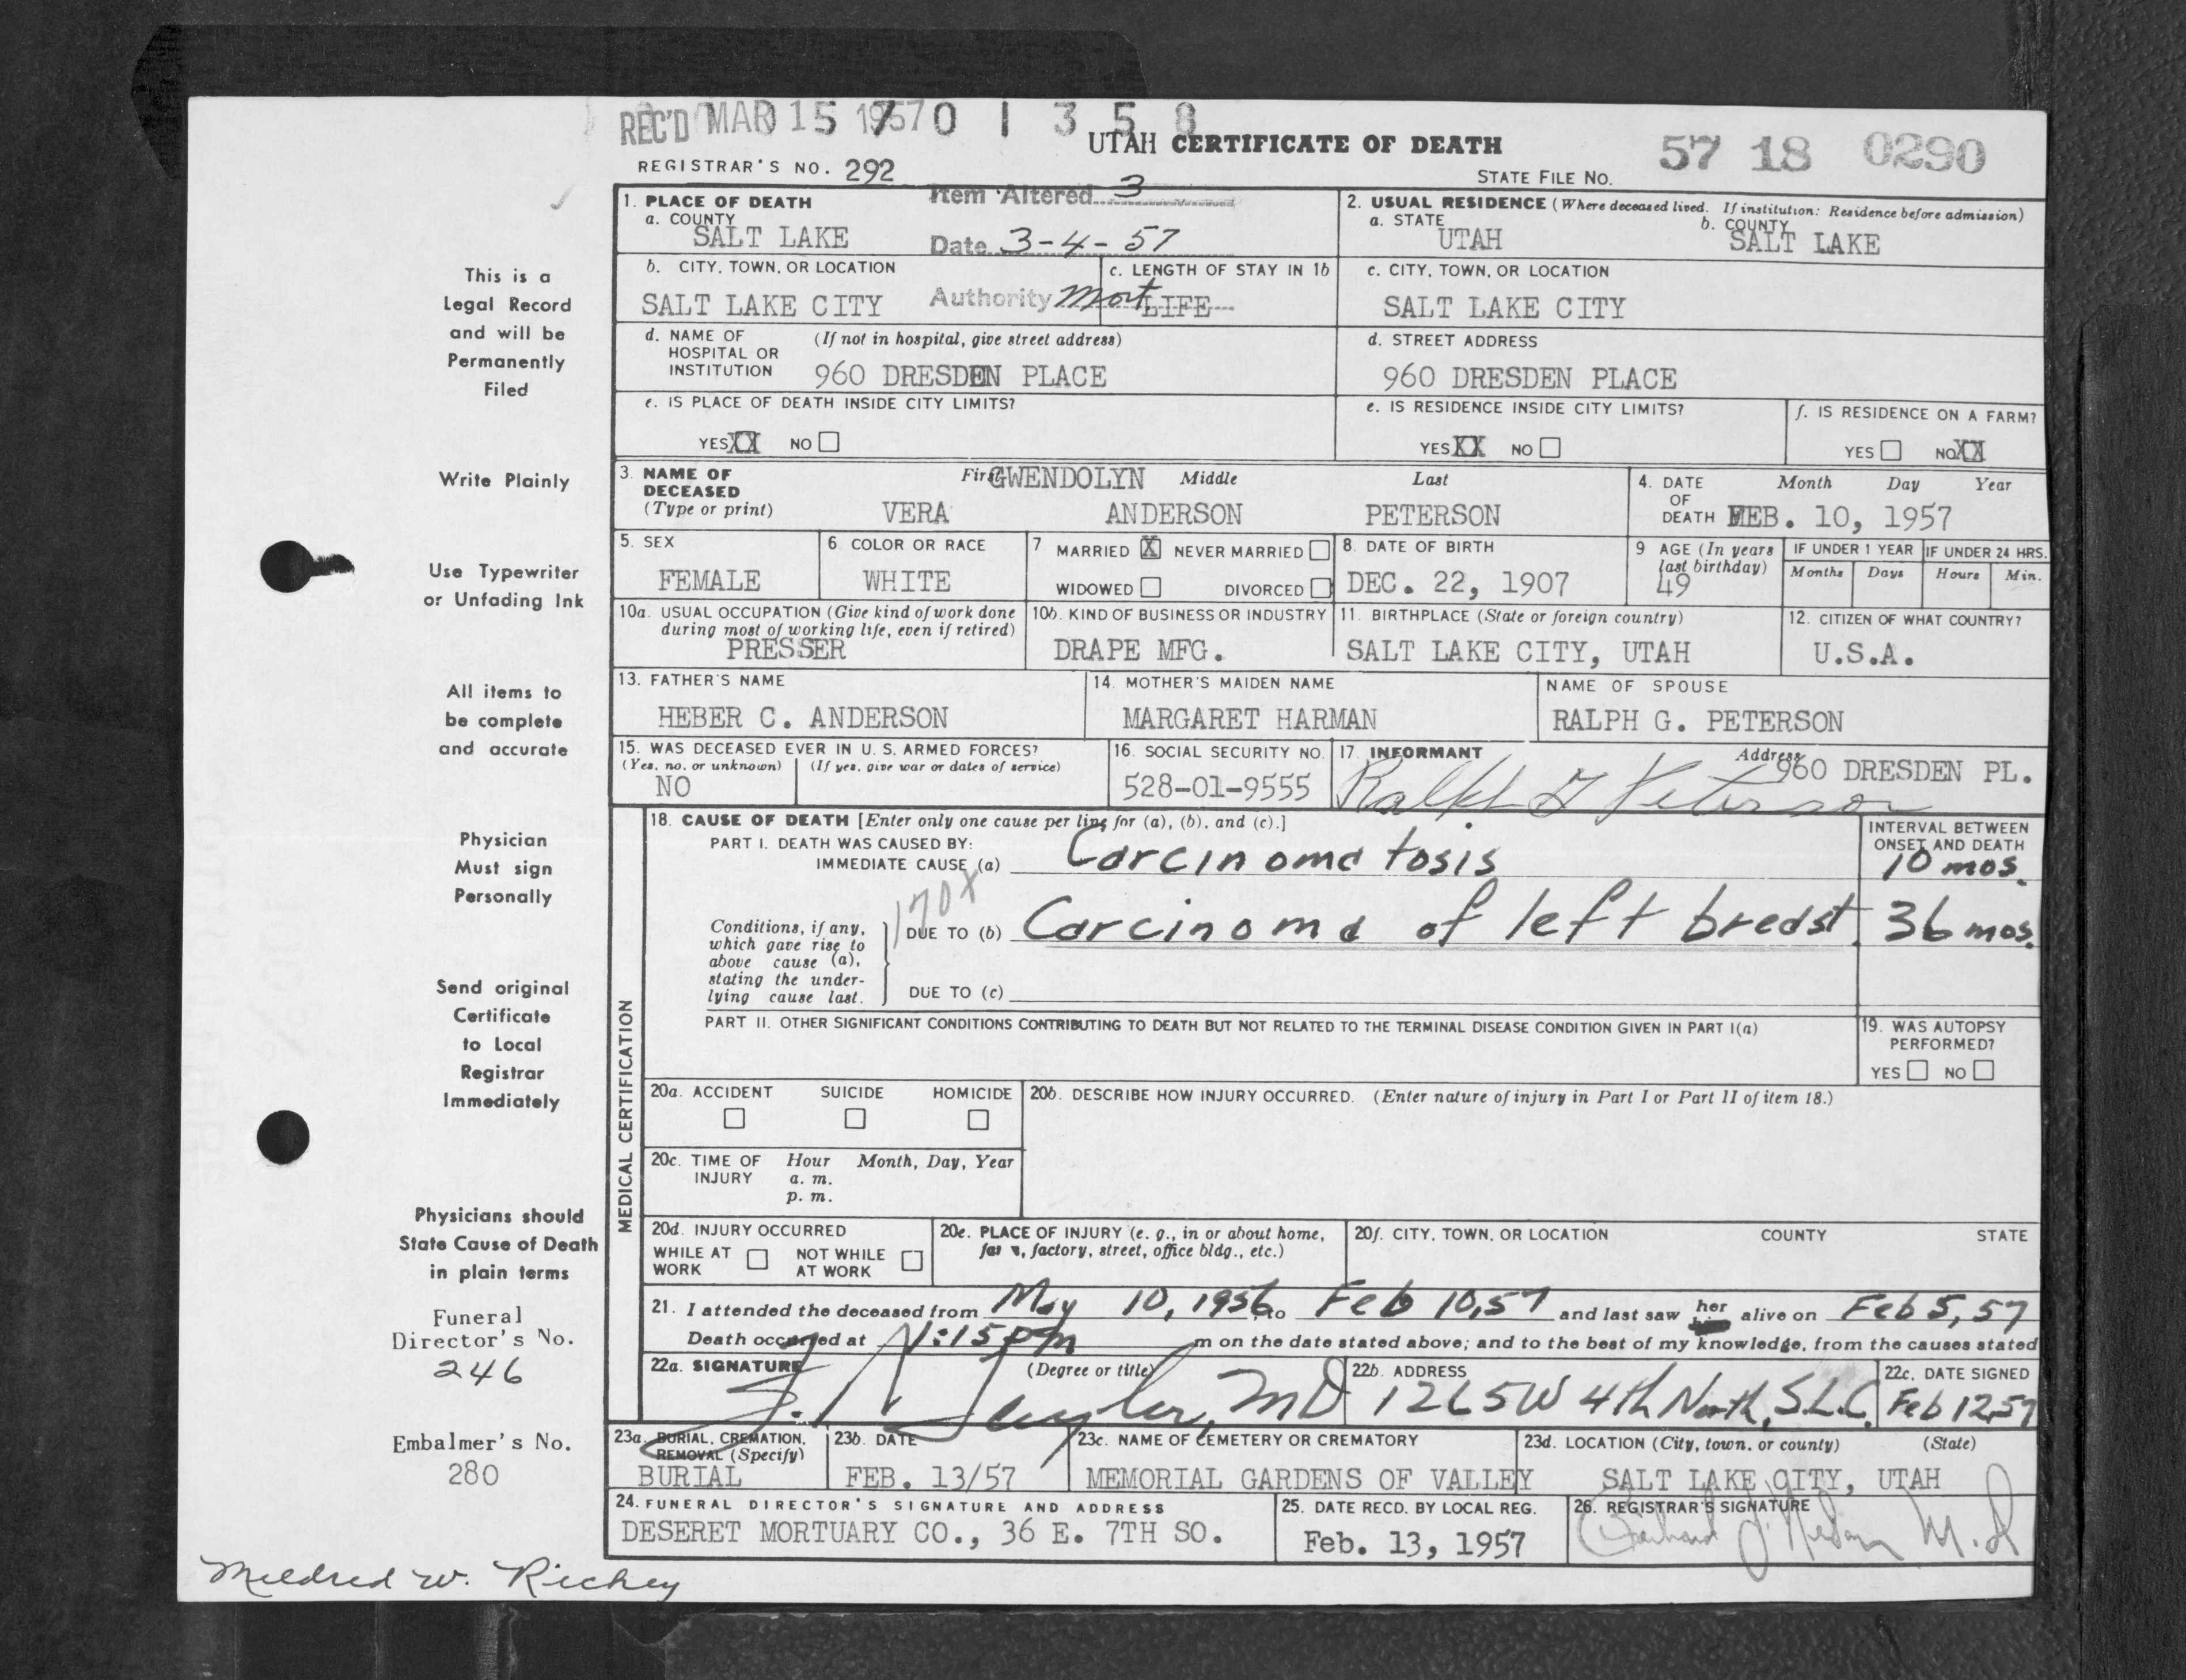 REC'D MAR 15 1957 0 1 3 5 8
UTAH CERTIFICATE OF DEATH
57 18 0290
REGISTRAR'S NO. 292
STATE FILE NO.
Item Altered 3
Date 3-4-57
Authority Mort
1. PLACE OF DEATH
a. COUNTY
SALT LAKE
2. USUAL RESIDENCE (Where deceased lived. If institution: Residence before admission)
a. STATE
UTAH
b. COUNTY
SALT LAKE
b. CITY, TOWN, OR LOCATION
SALT LAKE CITY
c. LENGTH OF STAY IN 1b
LIFE
c. CITY, TOWN, OR LOCATION
SALT LAKE CITY
d. NAME OF (If not in hospital, give street address)
HOSPITAL OR
INSTITUTION 960 DRESDEN PLACE
d. STREET ADDRESS
960 DRESDEN PLACE
e. IS PLACE OF DEATH INSIDE CITY LIMITS?
YES XX NO
e. IS RESIDENCE INSIDE CITY LIMITS?
YES XX NO
f. IS RESIDENCE ON A FARM?
YES NO XX
3. NAME OF
DECEASED
(Type or print)
First GWENDOLYN Middle Last
VERA ANDERSON PETERSON
4. DATE Month Day Year
OF
DEATH FEB. 10, 1957
5. SEX
FEMALE
6 COLOR OR RACE
WHITE
7 MARRIED X NEVER MARRIED
WIDOWED DIVORCED
8. DATE OF BIRTH
DEC. 22, 1907
9 AGE (In years
last birthday)
49
IF UNDER 1 YEAR
Months Days
IF UNDER 24 HRS.
Hours Min.
10a. USUAL OCCUPATION (Give kind of work done
during most of working life, even if retired)
PRESSER
10b. KIND OF BUSINESS OR INDUSTRY
DRAPE MFG.
11. BIRTHPLACE (State or foreign country)
SALT LAKE CITY, UTAH
12. CITIZEN OF WHAT COUNTRY?
U.S.A.
13. FATHER'S NAME
HEBER C. ANDERSON
14. MOTHER'S MAIDEN NAME
MARGARET HARMAN
NAME OF SPOUSE
RALPH G. PETERSON
15. WAS DECEASED EVER IN U. S. ARMED FORCES?
(Yes, no, or unknown) (If yes, give war or dates of service)
NO
16. SOCIAL SECURITY NO.
528-01-9555
17. INFORMANT Address
960 DRESDEN PL.
Ralph G Peterson
MEDICAL CERTIFICATION
18. CAUSE OF DEATH [Enter only one cause per line for (a), (b), and (c).]
PART I. DEATH WAS CAUSED BY:
IMMEDIATE CAUSE (a) Carcinomatosis
INTERVAL BETWEEN
ONSET AND DEATH
10 mos.
170X
Conditions, if any,
which gave rise to
above cause (a),
stating the under-
lying cause last.
DUE TO (b) Carcinoma of left breast. 36 mos.
DUE TO (c)
PART II. OTHER SIGNIFICANT CONDITIONS CONTRIBUTING TO DEATH BUT NOT RELATED TO THE TERMINAL DISEASE CONDITION GIVEN IN PART I(a)
19. WAS AUTOPSY
PERFORMED?
YES NO
20a. ACCIDENT SUICIDE HOMICIDE
20b. DESCRIBE HOW INJURY OCCURRED. (Enter nature of injury in Part I or Part II of item 18.)
20c. TIME OF Hour Month, Day, Year
INJURY a. m.
p. m.
20d. INJURY OCCURRED
WHILE AT NOT WHILE
WORK AT WORK
20e. PLACE OF INJURY (e. g., in or about home,
factory, street, office bldg., etc.)
20f. CITY, TOWN, OR LOCATION COUNTY STATE
21. I attended the deceased from May 10, 1956, to Feb 10, 57 and last saw her alive on Feb 5, 57
Death occurred at 11:15 pm m on the date stated above; and to the best of my knowledge, from the causes stated
22a. SIGNATURE (Degree or title)
MD
22b. ADDRESS
1265 W 4th North, S.L.C.
22c. DATE SIGNED
Feb 12, 57
23a. BURIAL, CREMATION,
REMOVAL (Specify)
BURIAL
23b. DATE
FEB. 13/57
23c. NAME OF CEMETERY OR CREMATORY
MEMORIAL GARDENS OF VALLEY
23d. LOCATION (City, town, or county) (State)
SALT LAKE CITY, UTAH
24. FUNERAL DIRECTOR'S SIGNATURE AND ADDRESS
DESERET MORTUARY CO., 36 E. 7TH SO.
25. DATE RECD. BY LOCAL REG.
Feb. 13, 1957
26. REGISTRAR'S SIGNATURE
M.D
This is a
Legal Record
and will be
Permanently
Filed
Write Plainly
Use Typewriter
or Unfading Ink
All items to
be complete
and accurate
Physician
Must sign
Personally
Send original
Certificate
to Local
Registrar
Immediately
Physicians should
State Cause of Death
in plain terms
Funeral
Director's No.
246
Embalmer's No.
280
Mildred W. Richey